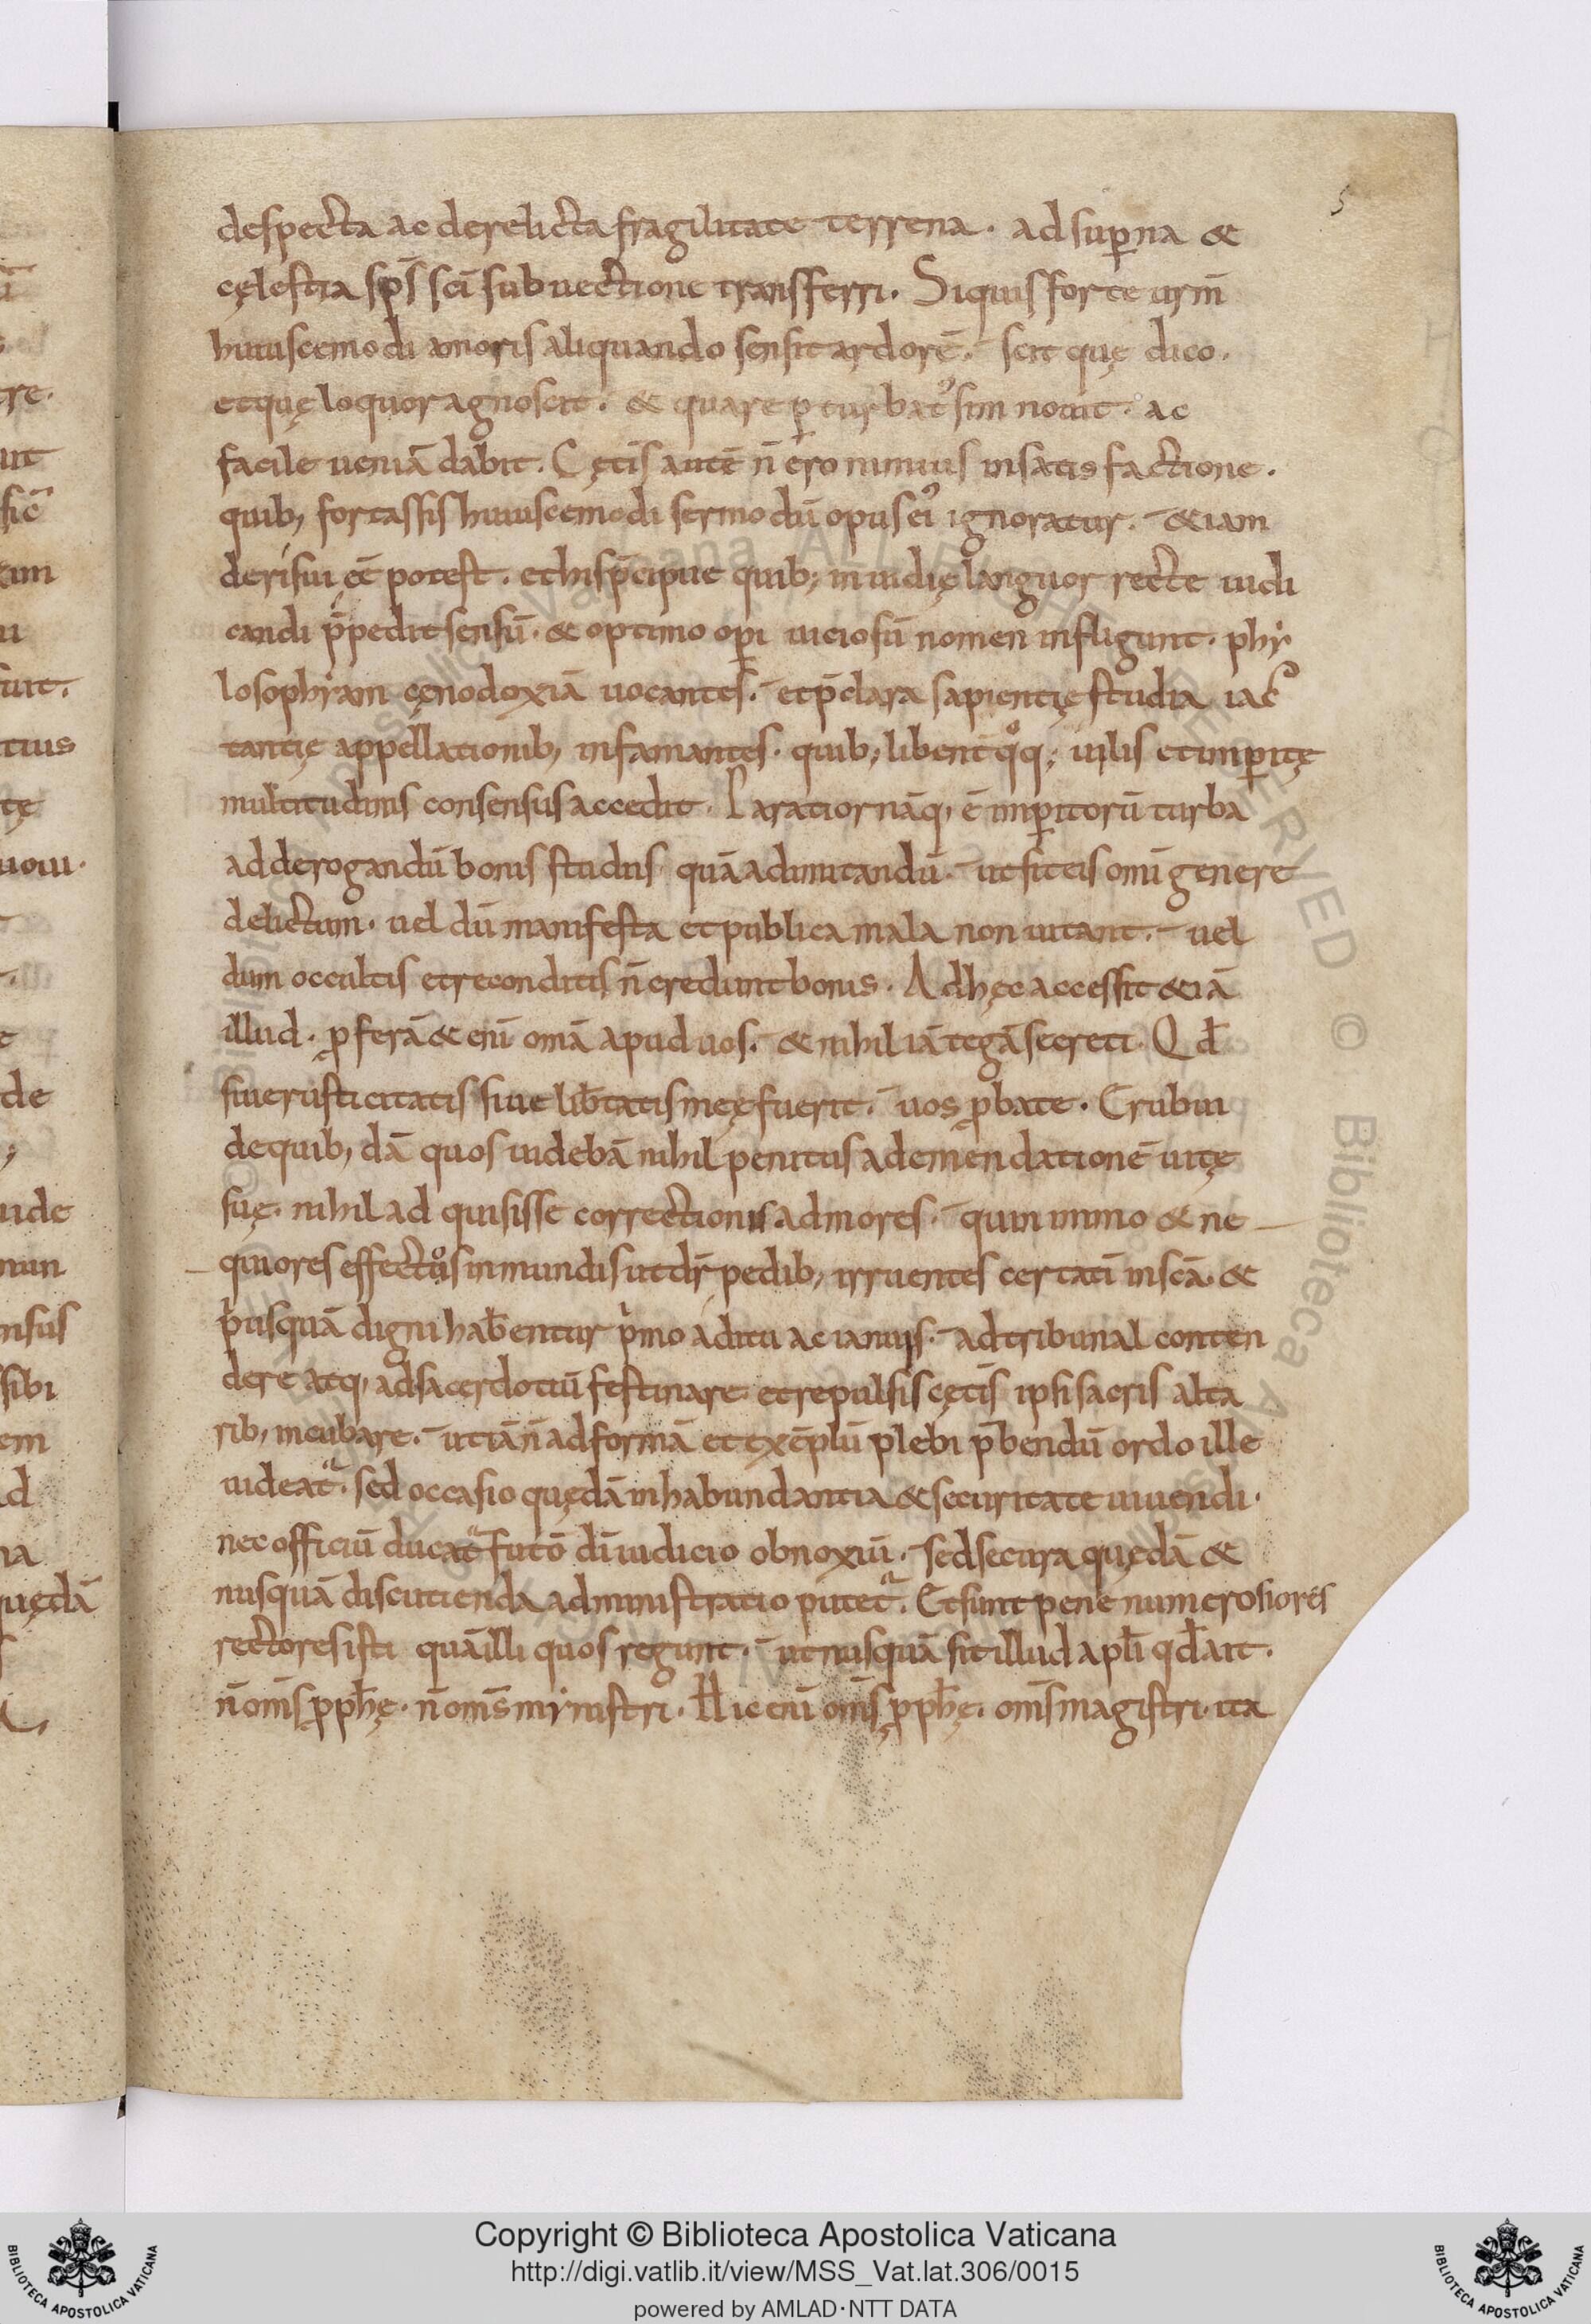 5
despecta ac derelicta fragilitate terrena. ad sup̱na &
cęlestia sp̅s sc̅i subuectione transferri. Siquis forte ur̅m
huiuscemodi amoris aliquando sensit ardore̅. scit quę dico.
et quę loquor agnoscit. & quare ꝑturbatꝰ sim nouit. ac
facile uenia̅ dabit. Cętis aute̅ n̅ ero nimius in satisfactione.
quib; fortassis huiuscemodi sermo du̅ opus eiꝰ ignoratur. & iam
derisui ee̅ potest. et his p̅cipue quib; inuidię languor recte iudi
candi p̅pedit sensu̅. & optimo oꝑi uiciosu̅ nomen infligunt. phy
losophyam cęnodoxia̅ uocantes. et p̅clara sapientię studia iac
tantię appellationib; infamantes. quib; libent̅ qoq; uilis et imꝑitę
multitudinis consensus accedit. Paratior na̅q; e̅ imꝑitoru̅ turba
ad derogandu̅ bonis studiis qua̅ ad imitandu̅. ut sit eis om̅i genere
delictum. uel du̅ manifesta et publica mala non uitant. uel
dum occultis et reconditis n̅ credunt bonis. Ad hęc accessit & ia̅
illud. ꝓfera̅ & eni̅ om̅a apud uos. & nihil ia̅ tega̅ secreti. Qd̅
siue rusticitatis siue lib̅tatis meę fuerit. uos ꝓbate. Erubui
de quib; da̅ quos uideba̅ nihil penitus ad emendatione̅ uitę
suę. nihil adquisisse correctionis ad mores. quin immo & ne
quiores effectos inmundis ut dr̅ pedib; irruentes certati̅ in sc̅a. &
p̅usqua̅ digni hab̅entur p̅mo aditu ac ianuis. ad tribunal conten
dere atq; ad sacerdotiu̅ festinare et repulsis cętis ipsi sacris alta
rib; incubare. ut ia̅ n̅ ad forma̅ et exe̅plu̅ plebi p̅bendu̅ ordo ille
uideat᷑. sed occasio quęda̅ in habundantia & securitate uiuendi.
nec officiu̅ ducat᷑ futo̅ di̅ iudicio obnoxiu̅. sed secura quęda̅ &
nusqua̅ discutienda administratio putet᷑. Et sunt pene numerosiores
rectores isti qua̅ illi quos regunt. ut nusqua̅ sit illud apl̅i qd̅ ait.
n̅ om̅s ꝓph̅ę. n̅ om̅s mynistri. Hic eni̅ om̅s ꝓph̅ę. om̅s magistri. ita
Copyright © Biblioteca Apostolica Vaticana
http://digi.vatlib.it/view/MSS_Vat.lat.306/0015
powered by AMLAD·NTT DATA
BIBLIOTECA APOSTOLICA VATICANA
BIBLIOTECA APOSTOLICA VATICANA